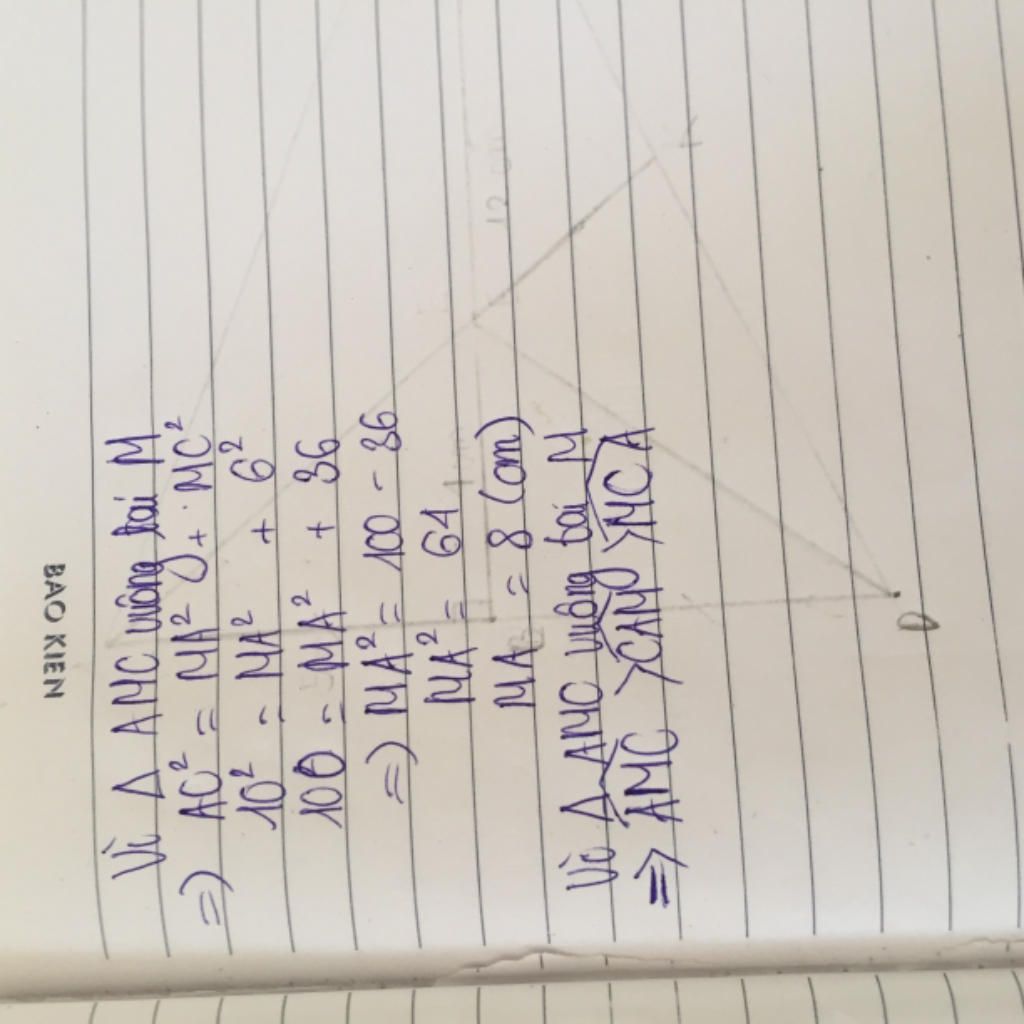 BAO KIEN
Vì Δ AMC vuông tại M
=) AC² = MA² + MC²
10² = MA² + 6²
100 = MA² + 36
=) MA² = 100 - 36
MA² = 64
MA = 8 (cm)
Vì Δ AMC vuông tại M
=> AMC > CAM > MCA
12 cm
D